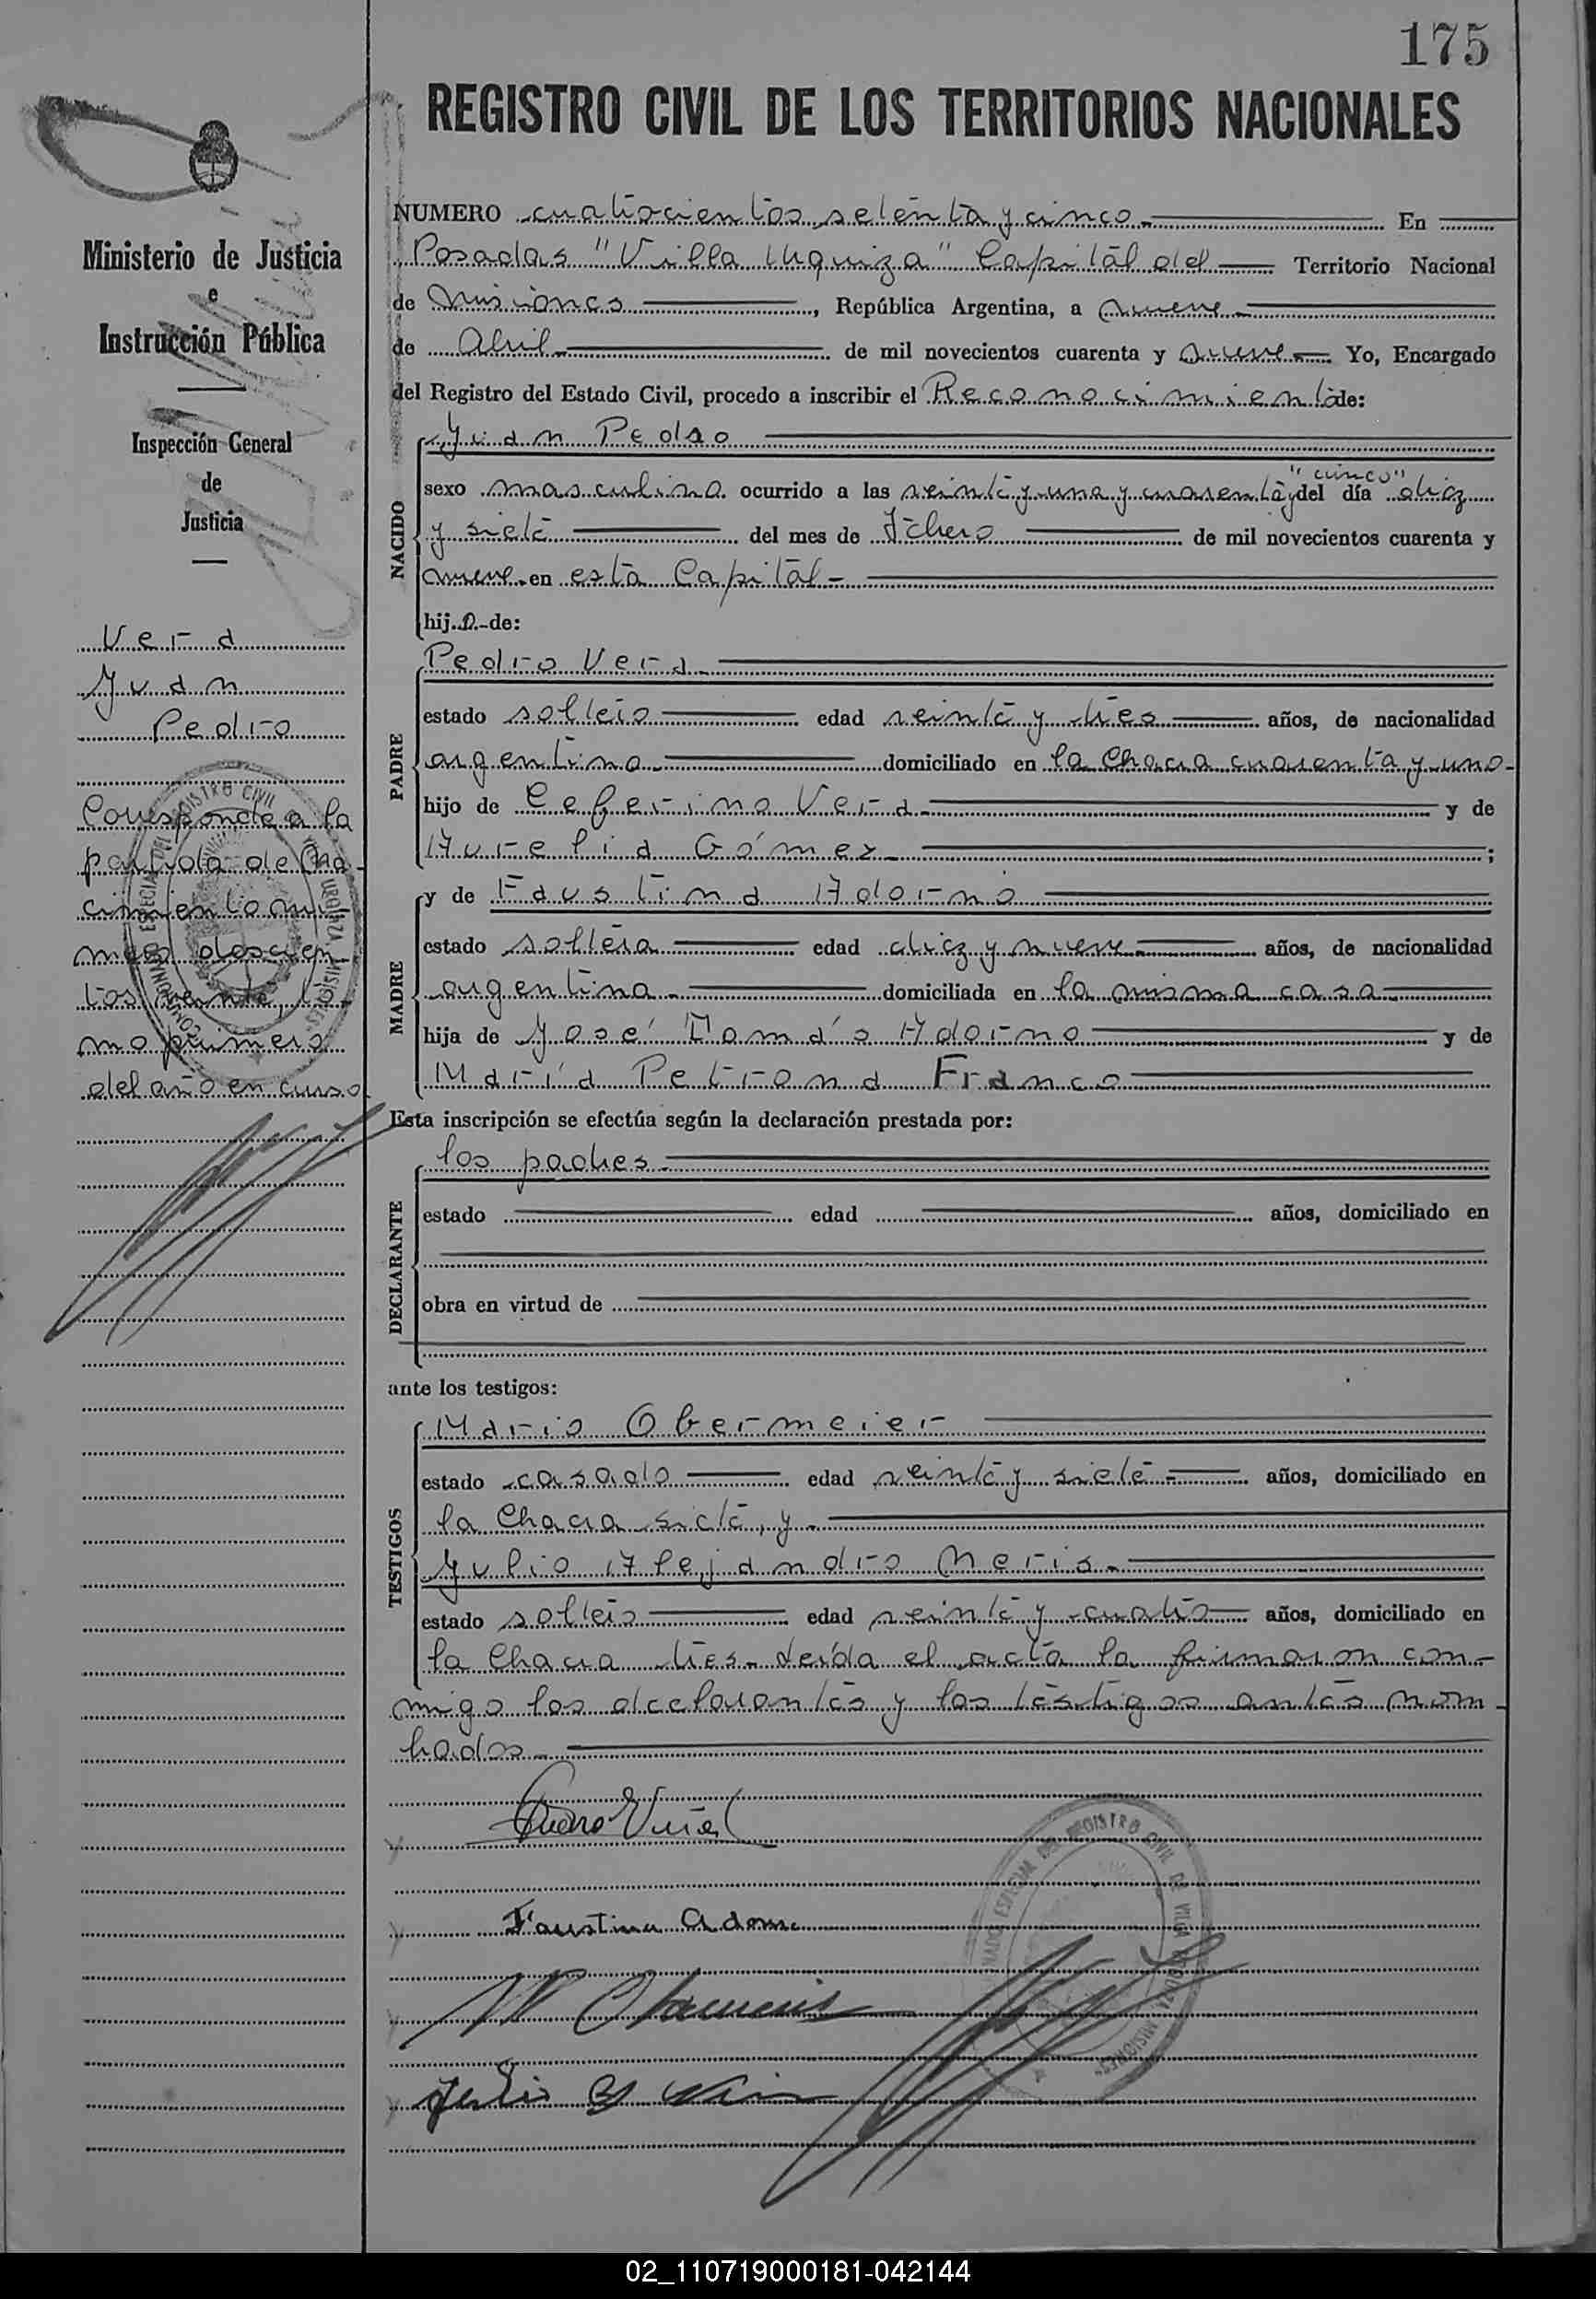 175
REGISTRO CIVIL DE LOS TERRITORIOS NACIONALES
Ministerio de Justicia
e
Instrucción Pública
Inspección General
de
Justicia
Vera
Juan
Pedro
Corresponde a la
partida de Na-
cimiento nú-
mero doscien-
tos veinte, to-
mo primero
del año en curso
NUMERO cuatrocientos setenta y cinco.- En
Posadas "Villa Urquiza" Capital del Territorio Nacional
de Misiones, República Argentina, a nueve-
de Abril- de mil novecientos cuarenta y nueve- Yo, Encargado
del Registro del Estado Civil, procedo a inscribir el Reconocimiento de:
NACIDO
Juan Pedro
"cinco"
sexo masculino ocurrido a las veinte y una y cuarenta y del día diez
y siete del mes de Febrero de mil novecientos cuarenta y
nueve-en esta Capital-
hijo-de:
PADRE
Pedro Vera-
estado soltero edad veinte y tres años, de nacionalidad
argentino- domiciliado en la Chacra cuarenta y uno-
hijo de Ceferino Vera- y de
Aurelia Gómez- ;
MADRE
y de Faustina Adorno
estado soltera edad diez y nueve- años, de nacionalidad
argentina- domiciliada en la misma casa
hija de José Tomás Adorno y de
María Petrona Franco
Esta inscripción se efectúa según la declaración prestada por:
DECLARANTE
los padres-
estado edad años, domiciliado en
obra en virtud de
ante los testigos:
TESTIGOS
Mario Obermeier
estado casado edad veinte y siete- años, domiciliado en
la Chacra siete, y-
Julio Alejandro Neris-
estado soltero edad veinte y cuatro años, domiciliado en
la Chacra tres- Leída el acta la firmaron con-
migo los declarantes y los testigos antes nom-
brados-
Faustina Adorno
02_110719000181-042144